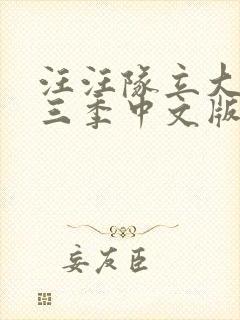 汪汪队立大
三季中文版
妄友臣